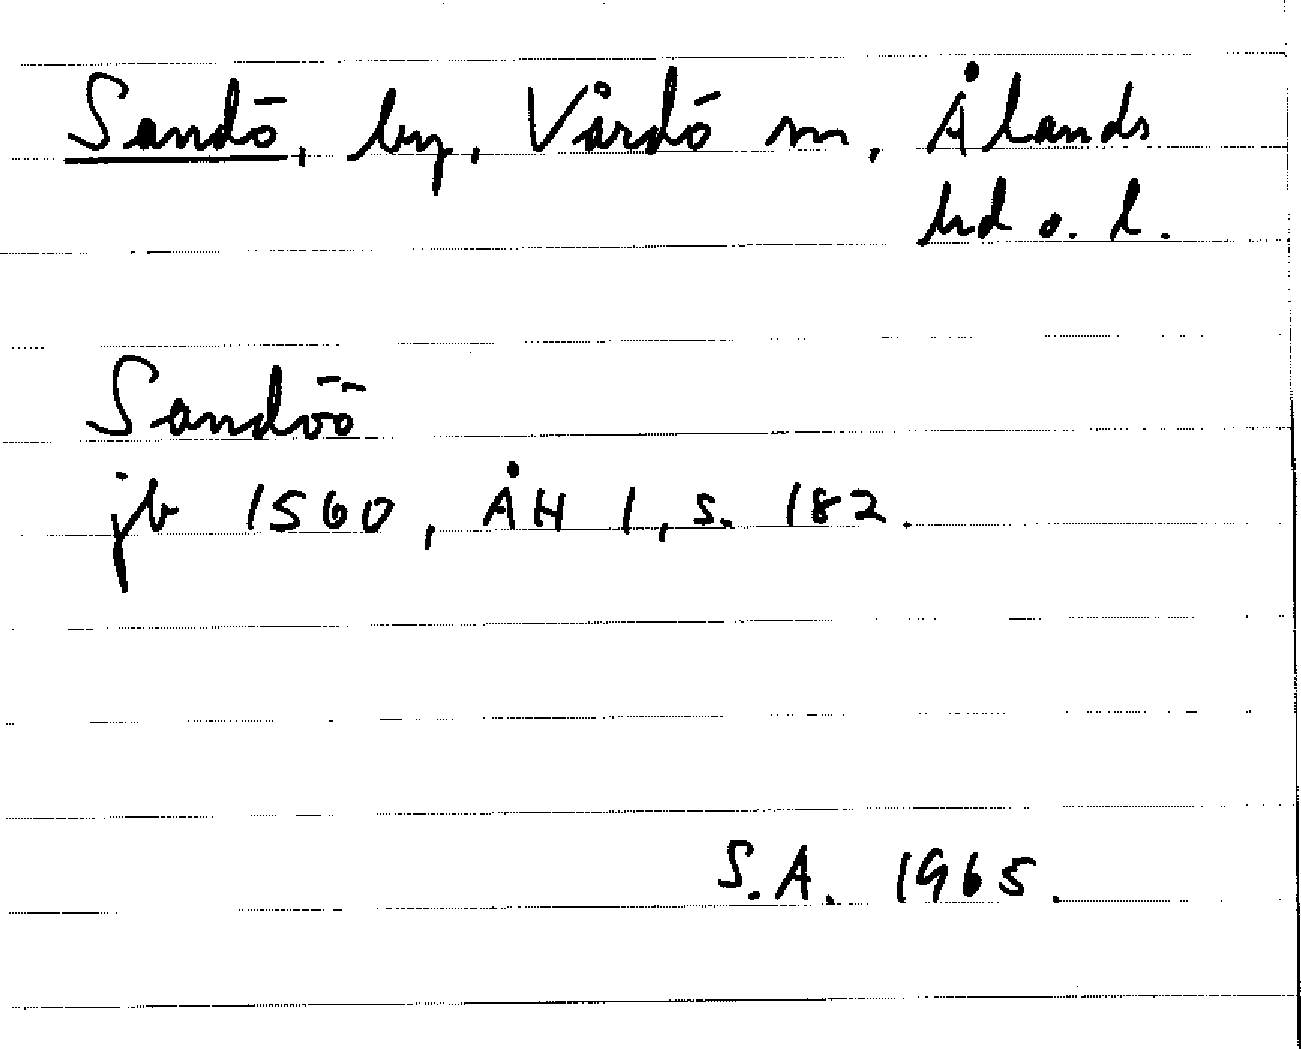 Sandö, by, Vårdö sn, Ålands
hd o. l.
Sandöö
jb 1560, ÅH 1, s. 182.
S.A. 1965.